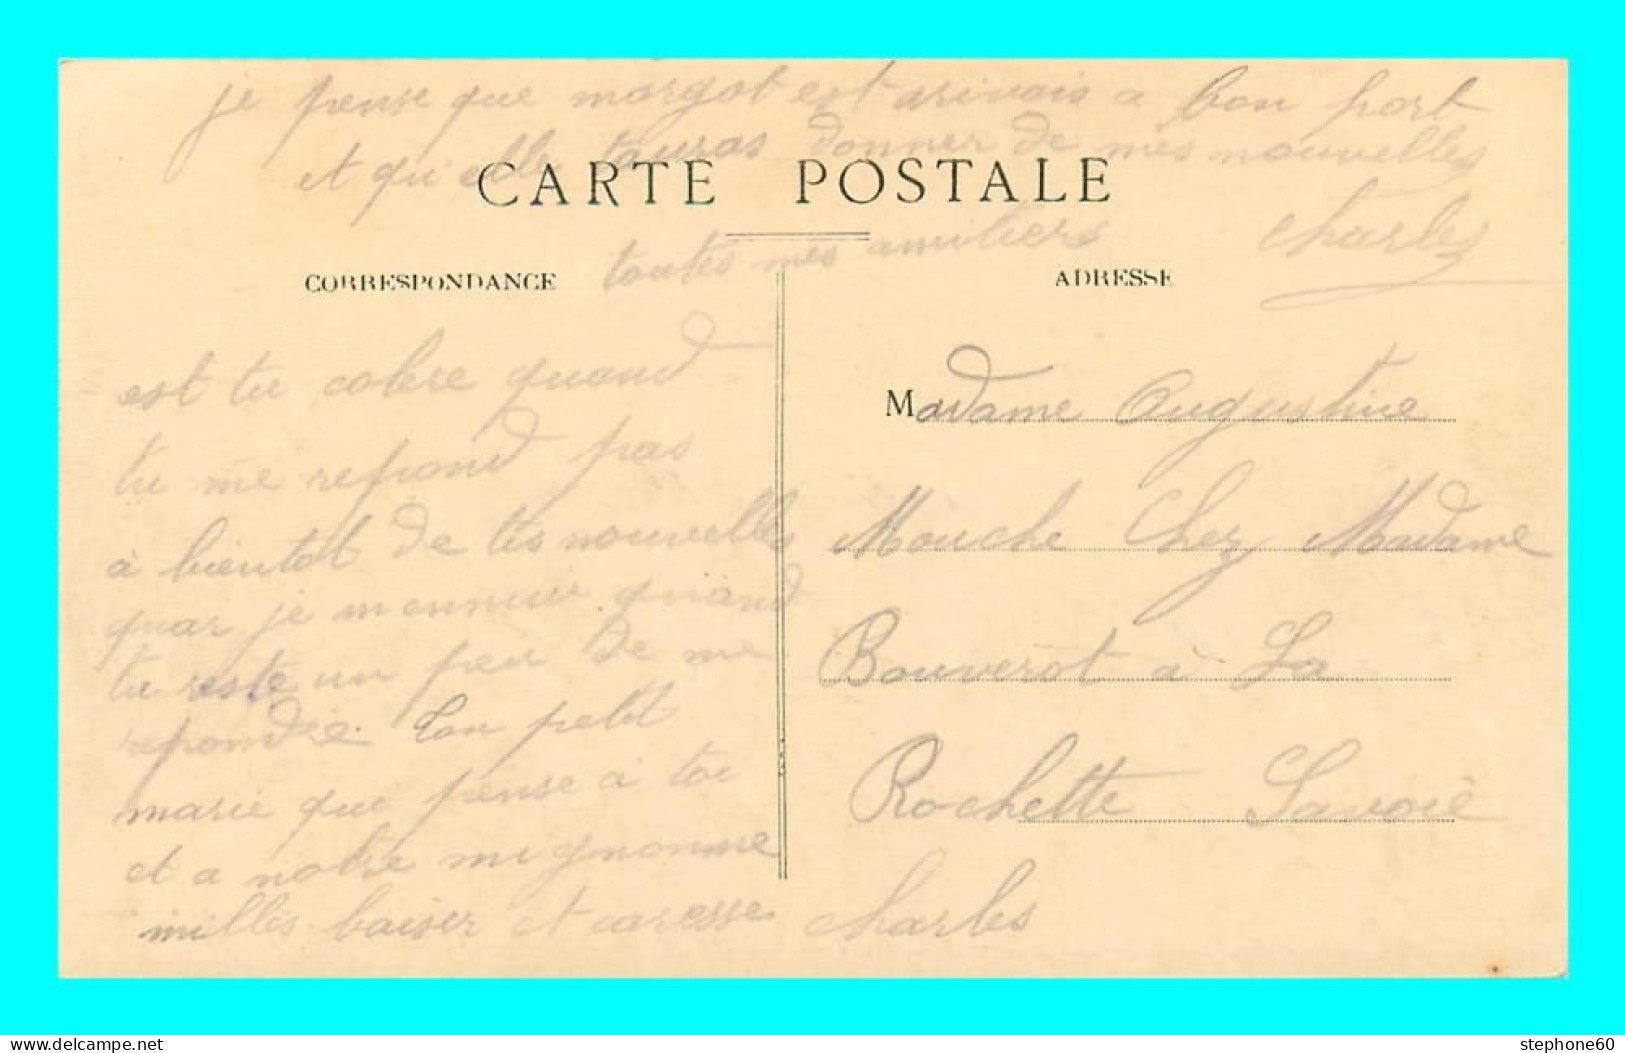 je pense que margot est arivais a bon port
et qu'elle tauras donner de mes nouvelles
CARTE POSTALE
toutes mes amitiers Charles
CORRESPONDANCE
est tu colere quand
tu me repond pas
à bientot de tes nouvelles
quar je mennuie quand
tu reste un peu de me
repondre. Ton petit
marie que pense a toi
et a notre mignonnne
milles baiser et caresse Charles
ADRESSE
Madame Augustine
Mouche Chez Madame
Bouverot à La
Rochette Savoie
stephone60